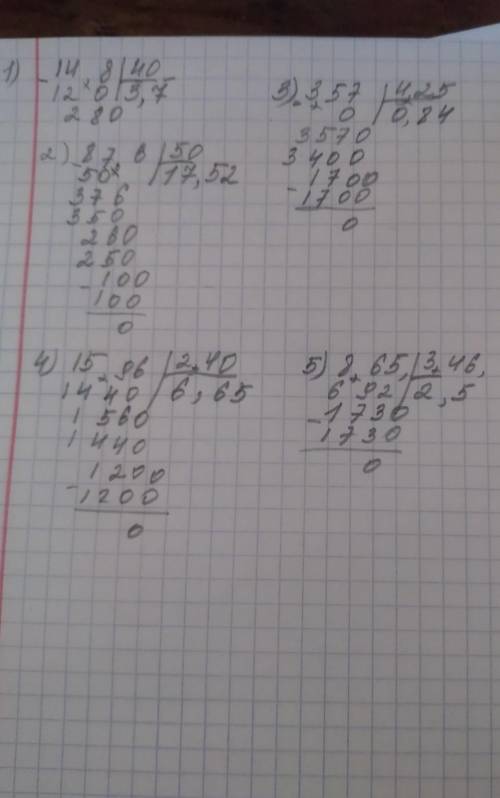 1) 14,8 | 40
12 0 | 3,7
280
2) 87 6 | 50
50 | 17,52
376
350
260
250
- 100
100
0
3) 357 | 4,25
0 | 0,84
3570
3400
- 1700
1700
0
4) 15,96 | 2,40
14 40 | 6,65
1 560
1 440
- 1200
1200
0
5) 8,65, | 3,46,
6 92 | 2,5
- 1730
1730
0